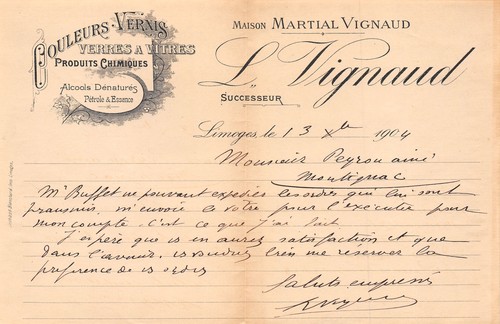 COULEURS-VERNIS
VERRES A VITRES
PRODUITS CHIMIQUES
Alcools Dénaturés
Pétrole & Essence
MAISON MARTIAL VIGNAUD
L. Vignaud
SUCCESSEUR
Limoges, le 13 Xbre 1904
Monsieur Peyrou ainé
Montignac
Mr Buffet ne pouvant expédier les ordres qui lui sont
transmis, m'envoie le votre pour l'exécuter pour
mon compte. c'est ce que j'ai fait
J'espère que vs en aurez satisfaction et que
dans l'avenir, vs voudrez bien me réserver la
preference de vs ordres
Saluts empressés